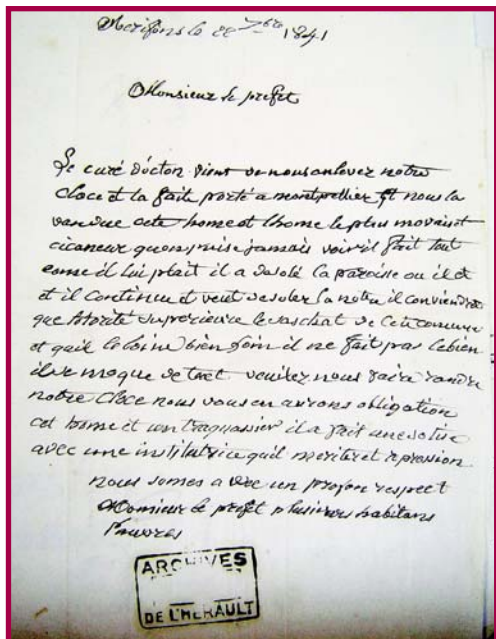 Merifons le 22 7bre 1841
Monsieur le prefet
Le curé d'octon vient de nous anlevez notre
cloce et la fait porté a montpellier Et nous la
vandue cete home et lhome le plus movais et
cicaneur quon puise jamais voir il fait tout
come il lui plait il a desolé la paroise ou il et
et il continue et veut desoler la notre il conviendret
que lotorité superieure le saschat de cete comune
et quil le loine bien loin il ne fait pas le bien
il se moque de tout veuilez nous faire randre
notre cloce nous vous en aurons obligation
cet home et un traquassier il a fait une sotise
avec une institutrice quil meritet represion
nous somes avec un profon respect
Monsieur le prefet plusieurs habitans
Pauvres
ARCHIVES
DE L'HERAULT